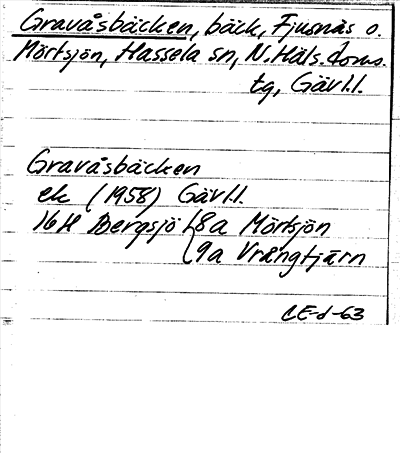 Gravåsbäcken, bäck, Fjusnäs o.
Mörtsjön, Hassela sn, N. Häls. doms.
tg, Gävl.l.
Gravåsbäcken
ek (1958) Gävl.l.
16H Bergsjö 8a Mörtsjön
9a Vrångtjärn
CE-d-63